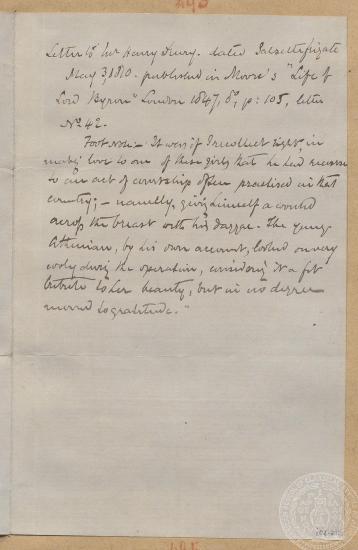 Letter to Mr Henry Drury. dated Salsette frigate
May 3, 1810. published in Moore's "Life of
Lord Byron" London 1847, 8o, p: 105, letter
No 42.
Foot note:- It was, if I recollect right, in
making love to one of these girls that he had recourse
to an act of courtship often practised in that
country; - namely, giving himself a wound
across the breast with his dagger. The young
Athenian, by his own account, looked on very
cooly during the operation, considering it a fit
tribute to her beauty, but in no degree
moved to gratitude."